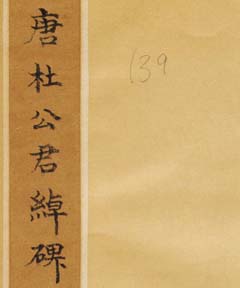 唐杜公君綽碑
139